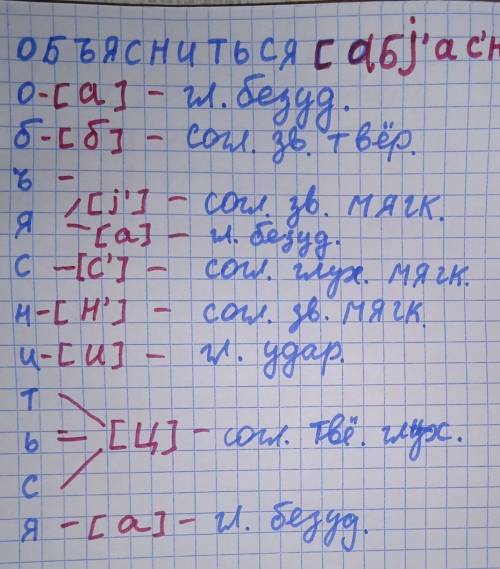 объясниться [абj'ас'н
о-[а] - гл. безуд.
б-[б] - согл. зв. твёр.
ъ -
/[j'] - согл. зв. мягк.
я -[а] - гл. безуд.
с -[с'] - согл. глух. мягк.
н-[н'] - согл. зв. мягк.
и-[и] - гл. удар.
т
ь = [ц] - согл. твё. глух.
с
я -[а] - гл. безуд.